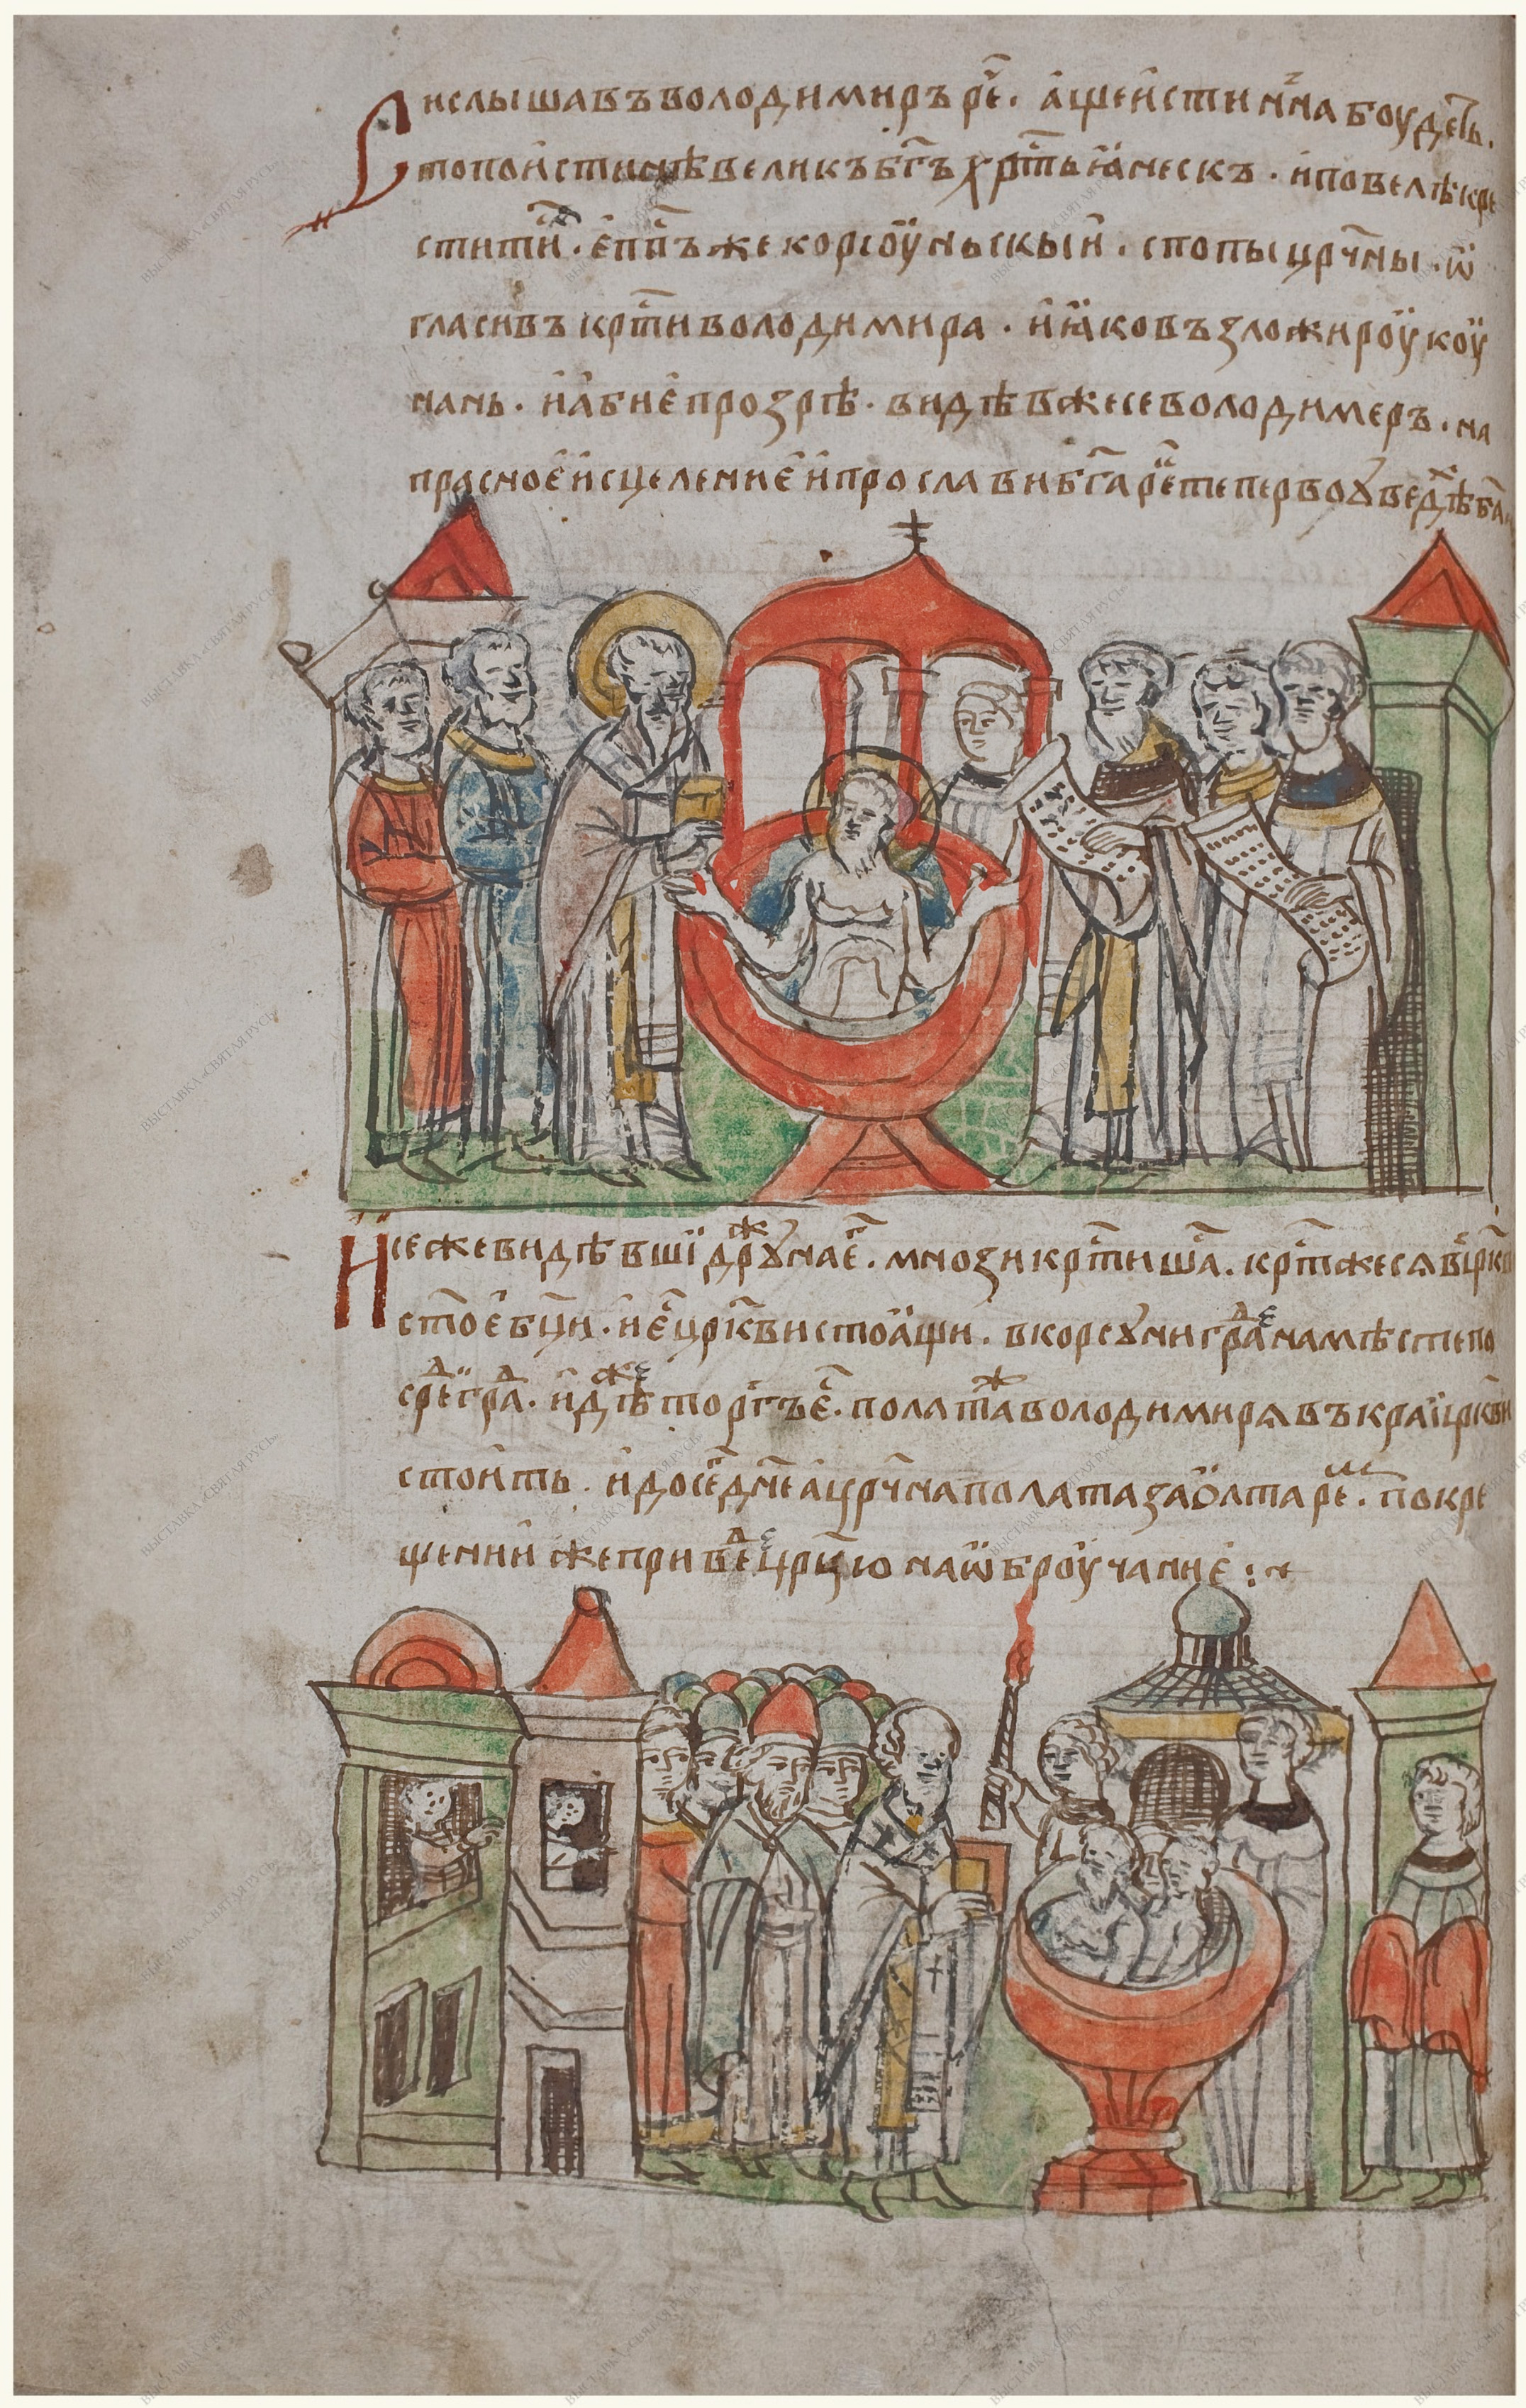 Си слышавъ володимиръ ре҃. аще истин҃на боудеть.
то поистинѣ великъ бг҃ъ хрт҃ьꙗнескъ. и повелѣ кре
стити҃. еп҃пъ же корсоуньскыи. с попы цр҃чны. ѿ
гласивъ крт҃и володимира. и ꙗко възложи роукоу
нань. и абие прозрѣ. видѣв же се володимеръ. на
прасное исцеление и прослави бг҃а ре҃ теперво ꙋведѣ б҃а
И се же видѣвши дрꙋжина е҃. мнози крт҃иша. крт҃ же ся в црк҃ви
ст҃ое бц҃и. и е҃ црк҃ви стоꙗщи. в корсꙋни граде на мѣсте по
среди града. идѣже торгъ е҃. полата ж володимиря въ краи црк҃ви
стоить. и до се҃ дн҃е а цр҃чна полата за олтаре҃м. по кре
щении же приведе цр҃цю на ѿброучание :~
ВЫСТАВКА «СВЯТАЯ РУСЬ»